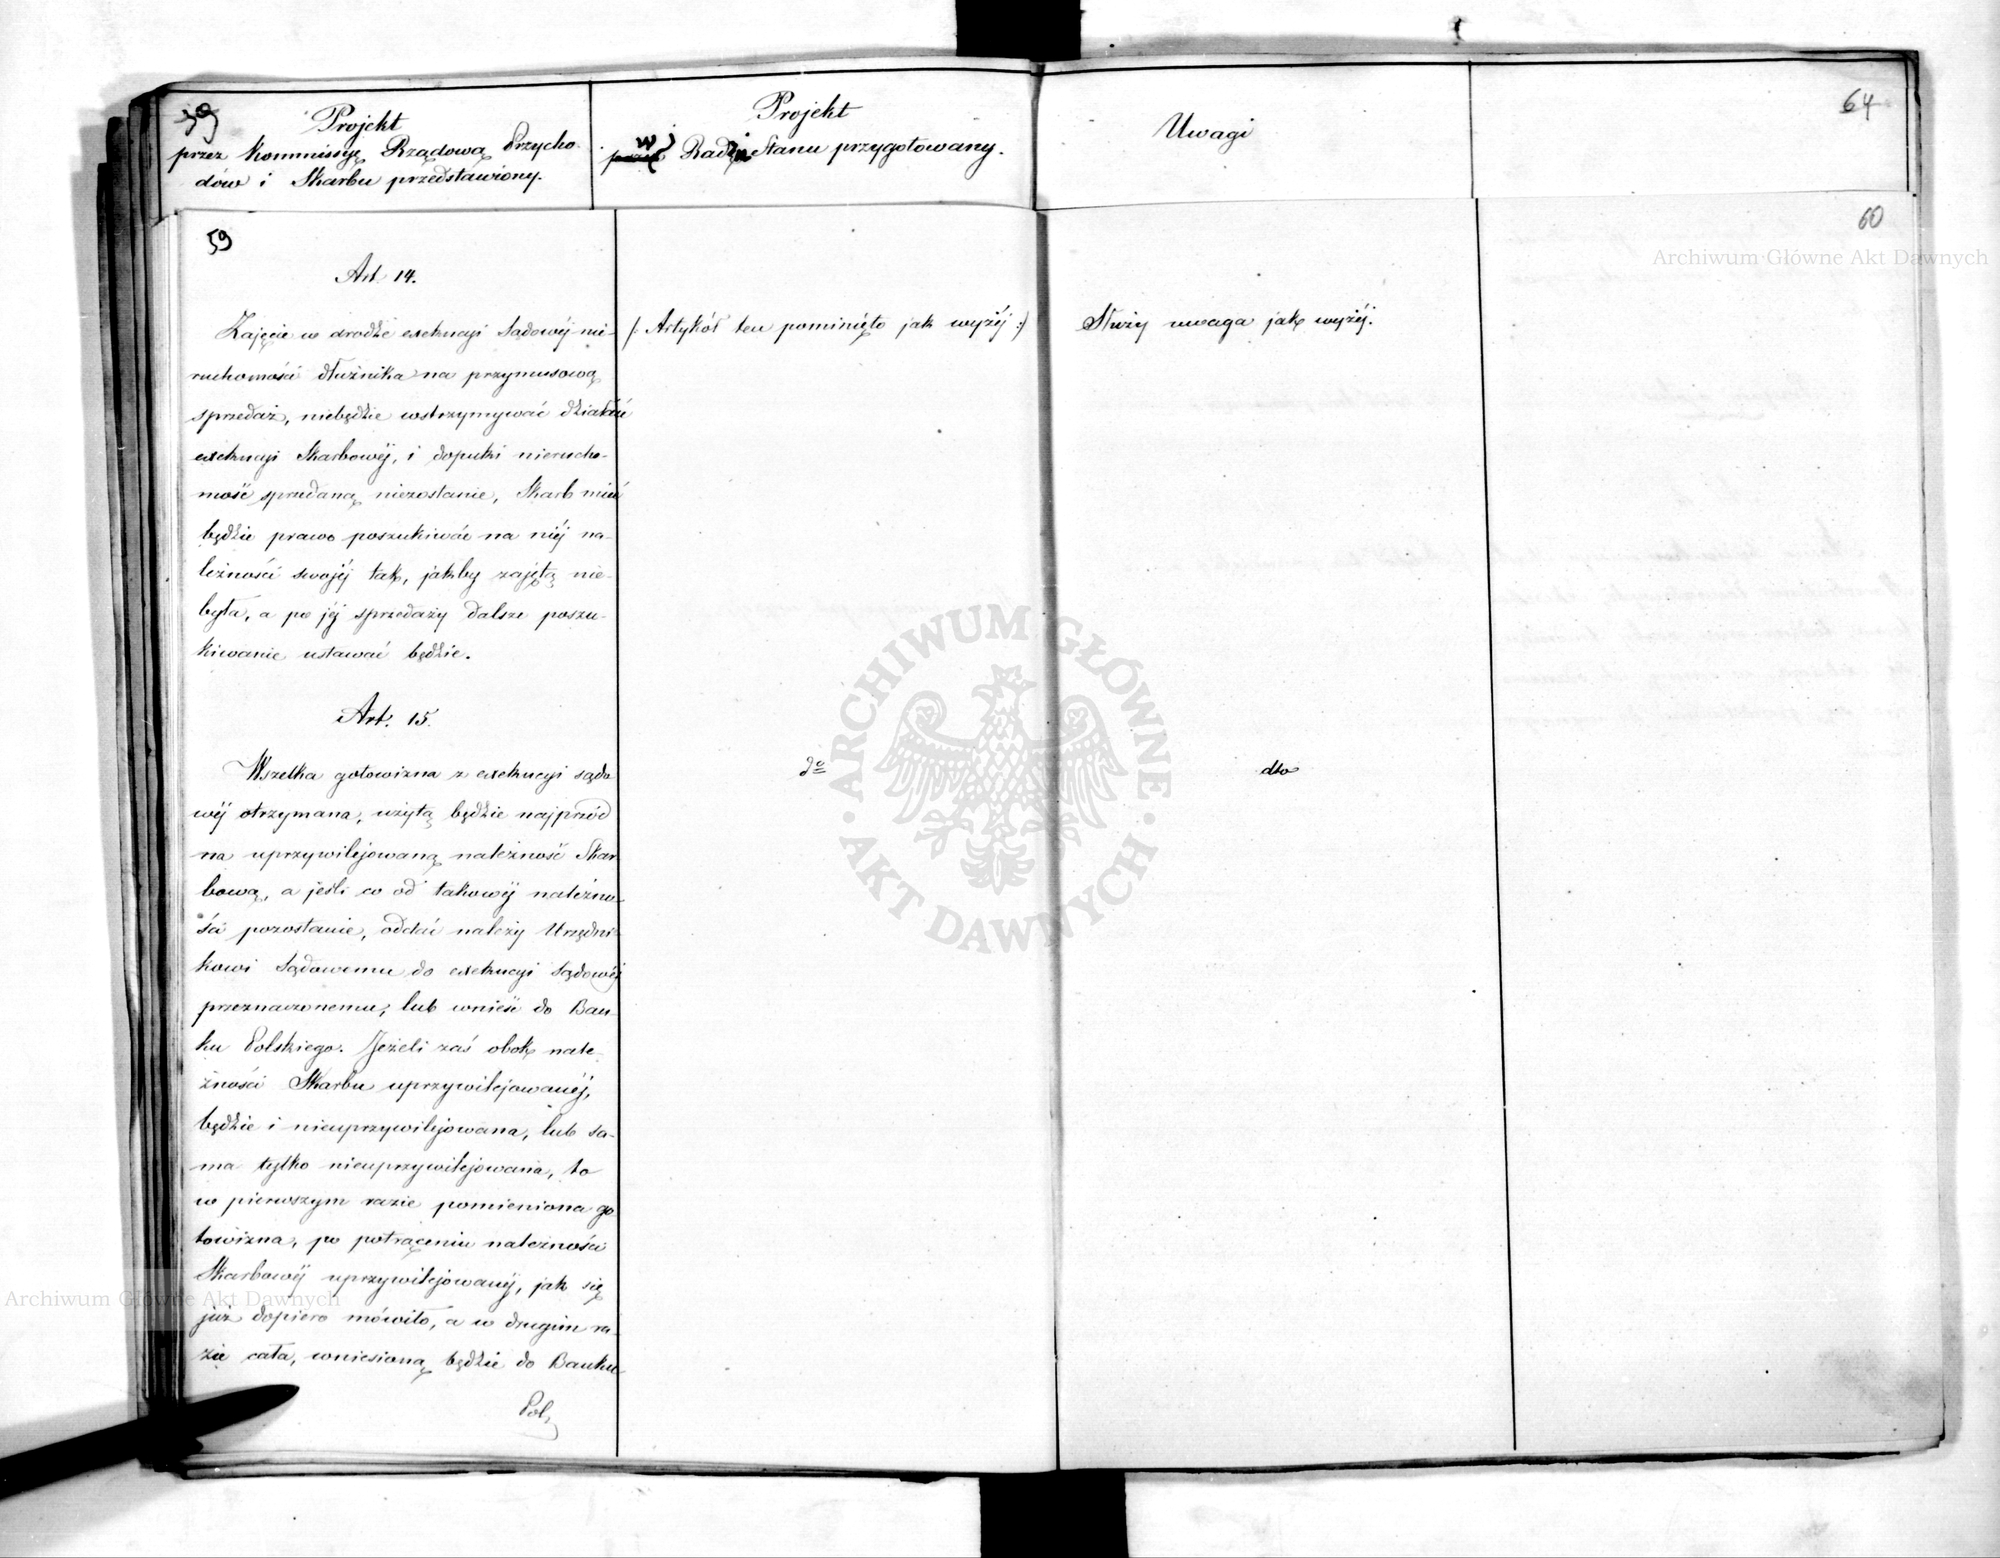 59
Projekt
przez Kommissyę Rządową Przycho-
dów i Skarbu przedstawiony.
Projekt
w
przez Radzie Stanu przygotowany.
Uwagi
64
59
60
Art. 14.
Zajęcie w drodze exekucyi Sądowéj nie-
ruchomości dłużnika na przymusową
sprzedaż, niebędzie wstrzymywać działań
exekucyi Skarbowéj, i dopuki nierucho-
mość sprzedaną niezostanie, Skarb mieć
będzie prawo poszukiwać na niéj na-
leżności swojéj tak, jakby zajętą nie-
była, a po jéj sprzedaży dalsze poszu-
kiwanie ustawać będzie.
/: Artykół ten pominięto jak wyżéj :/
Służy uwaga jak wyżéj.
Art. 15.
Wszelka gotowizna z exekucyi sądo
wéj otrzymana, użytą będzie najprzód
na uprzywilejowaną należność Skar
bową, a jeśli co od takowéj należno-
ści pozostanie, oddać należy Urzędni-
kowi Sądowemu do exekucyi Sądowéj
przeznaczonemu, lub wnieść do Ban-
ku Polskiego. Jeżeli zaś obok nale-
żności Skarbu uprzywilejowanéj,
będzie i nieuprzywilejowana, lub sa-
ma tylko nieuprzywilejowana, to
w pierwszym razie pomieniona go
towizna, po potrąceniu należności
Skarbowéj uprzywilejowanéj, jak się
już dopiero mówiło, a w drugim ra-
zie cała, wniesioną będzie do Banku
Pol-
do
dto
Archiwum Główne Akt Dawnych
ARCHIWUM GŁÓWNE AKT DAWNYCH
Archiwum Główne Akt Dawnych